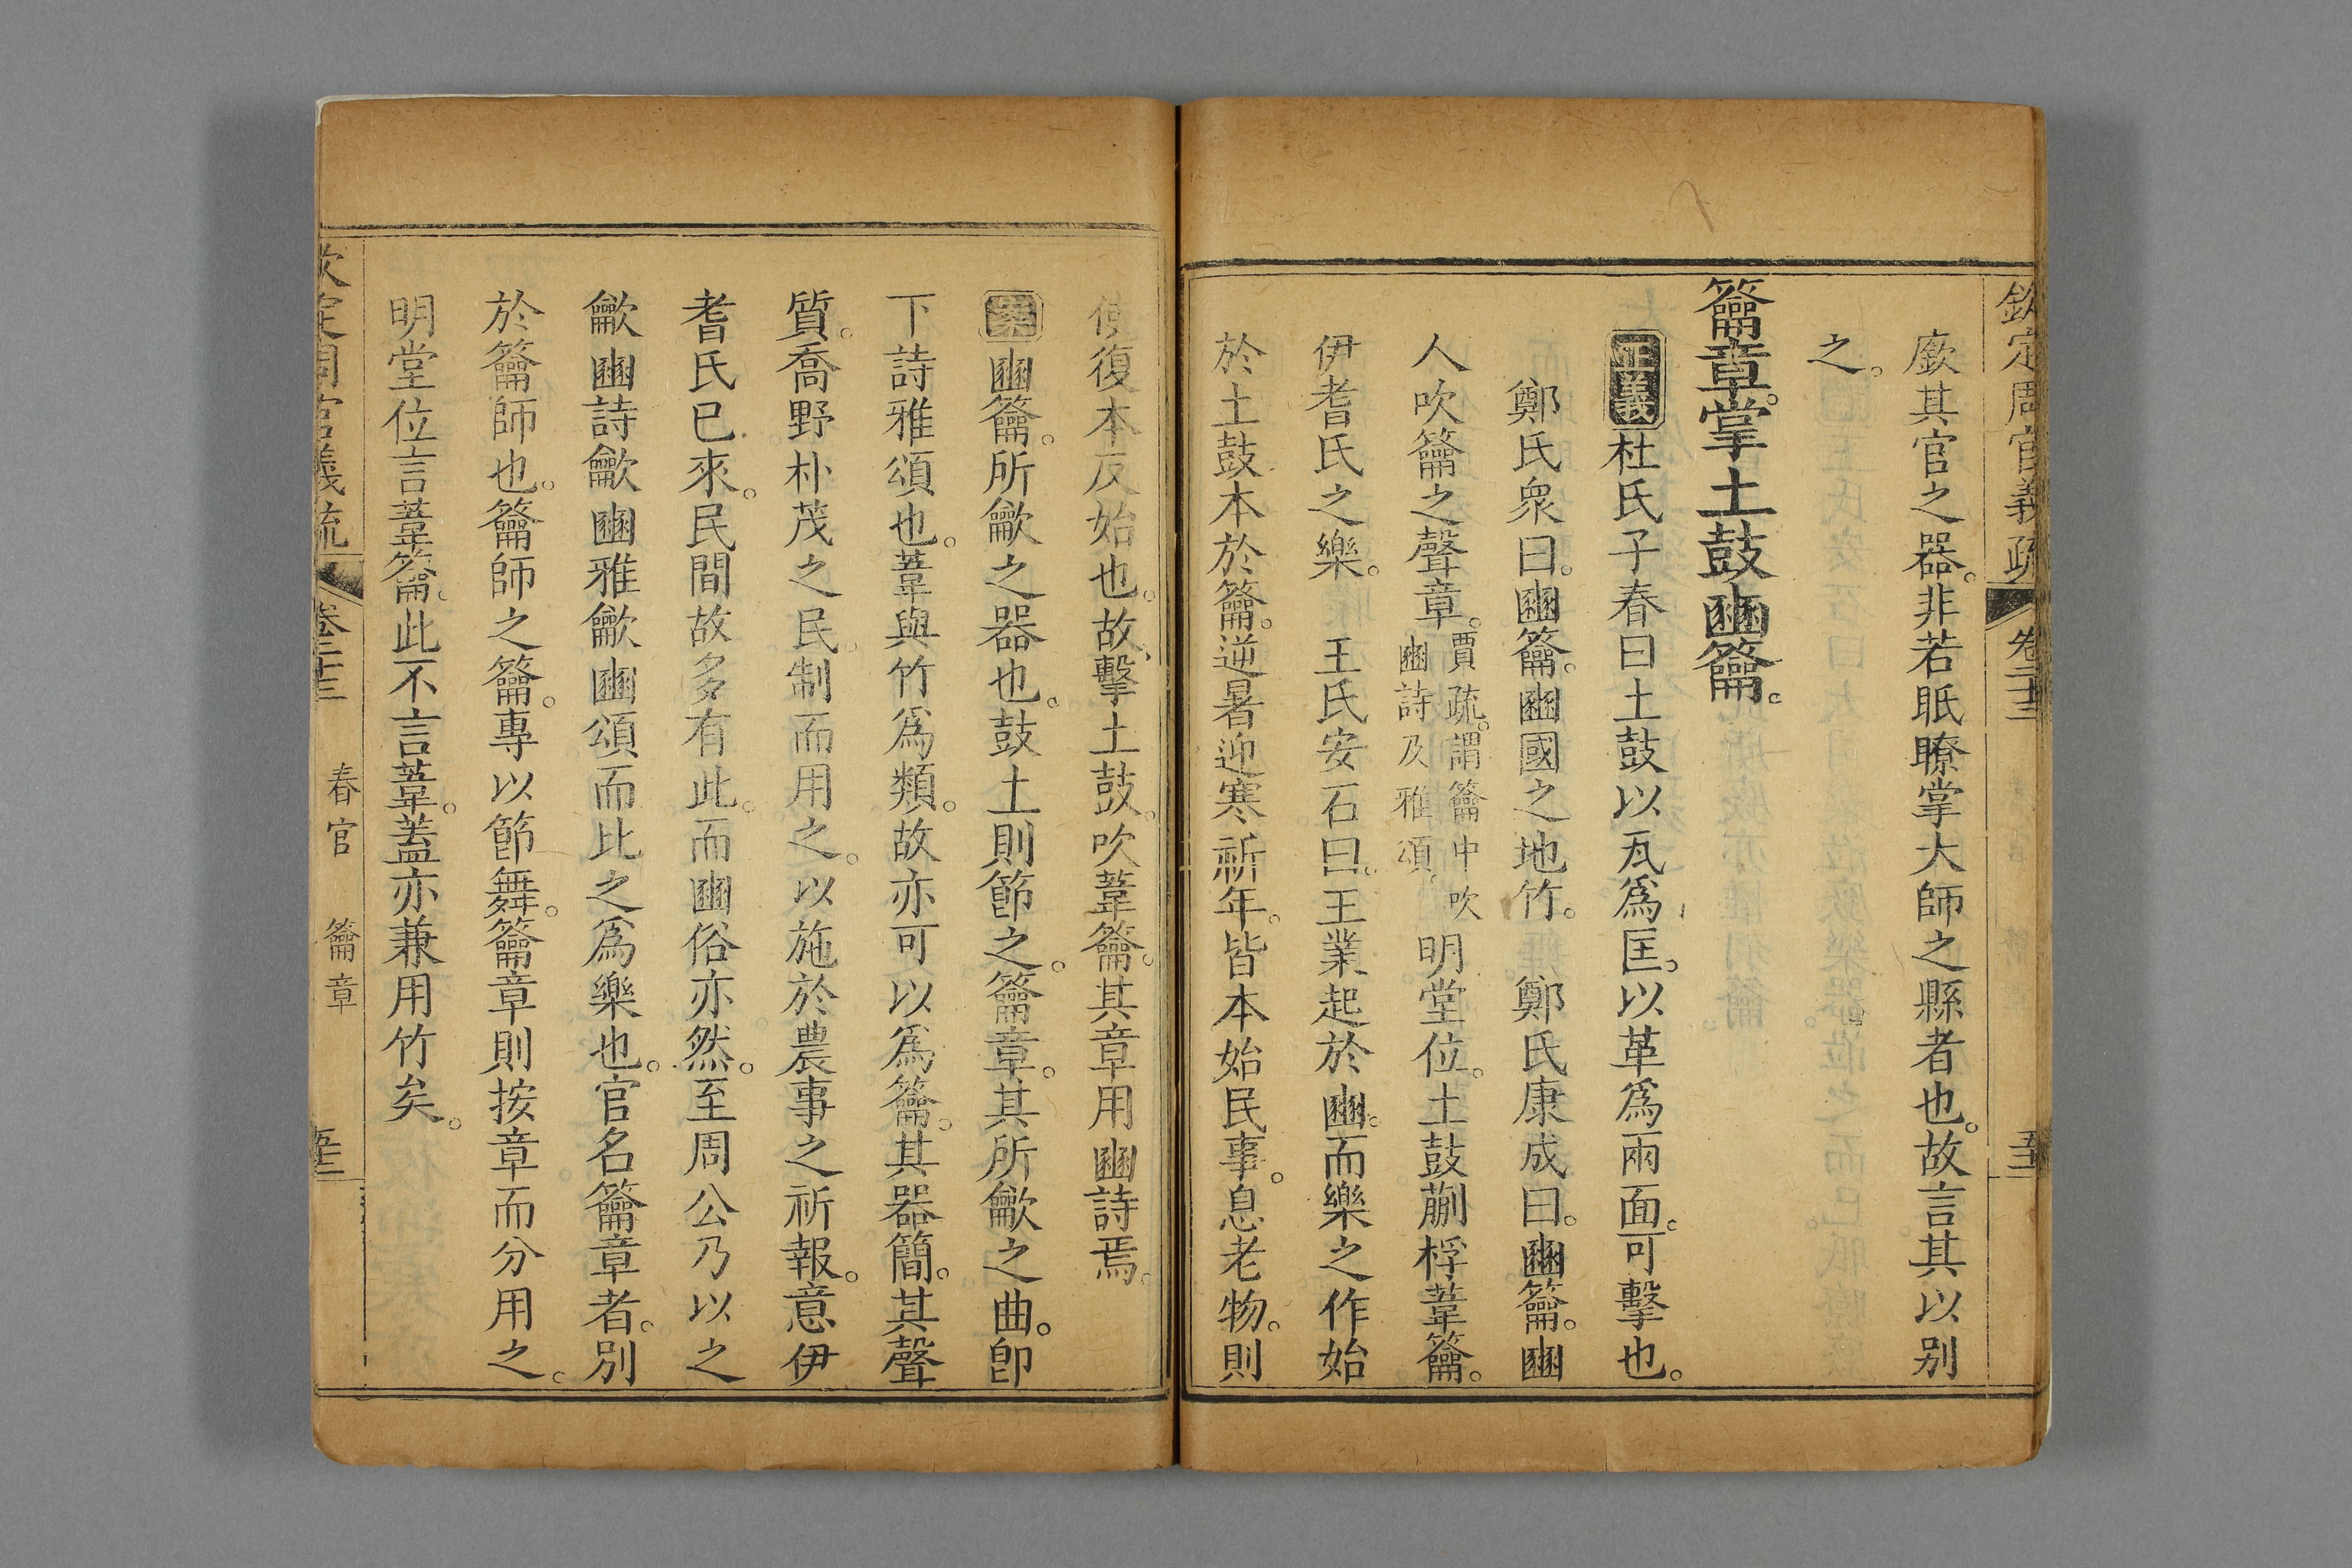 欽定周官義疏 卷二十三
廞其官之器。非若眂瞭掌大師之縣者也。故言其以别
之。
籥章。掌土鼓豳籥。
正義杜氏子春曰土鼓以瓦爲匡。以革爲兩面。可擊也。
鄭氏衆曰。豳籥。豳國之地竹。 鄭氏康成曰。豳籥。豳
人吹籥之聲章。賈疏。謂籥中吹豳詩及雅頌。明堂位。土鼓蒯桴葦籥。
伊耆氏之樂。 王氏安石曰。王業起於豳。而樂之作始
於土鼓本於籥。逆暑迎寒祈年。皆本始民事。息老物。則
使復本反始也。故擊土鼓。吹葦籥。其章用豳詩焉。
案豳籥。所龡之器也。鼓土則節之。籥章。其所龡之曲。卽
下詩雅頌也。葦與竹爲類。故亦可以爲籥。其器簡。其聲
質。喬野朴茂之民。制而用之。以施於農事之祈報。意伊
耆氏已來。民間故多有此。而豳俗亦然。至周公乃以之
龡豳詩龡豳雅龡豳頌而比之爲樂也。官名籥章者。别
於籥師也。籥師之籥。專以節舞。籥章則按章而分用之。
明堂位言葦籥。此不言葦。蓋亦兼用竹矣。
欽定周官義疏 卷二十三 春官 籥章